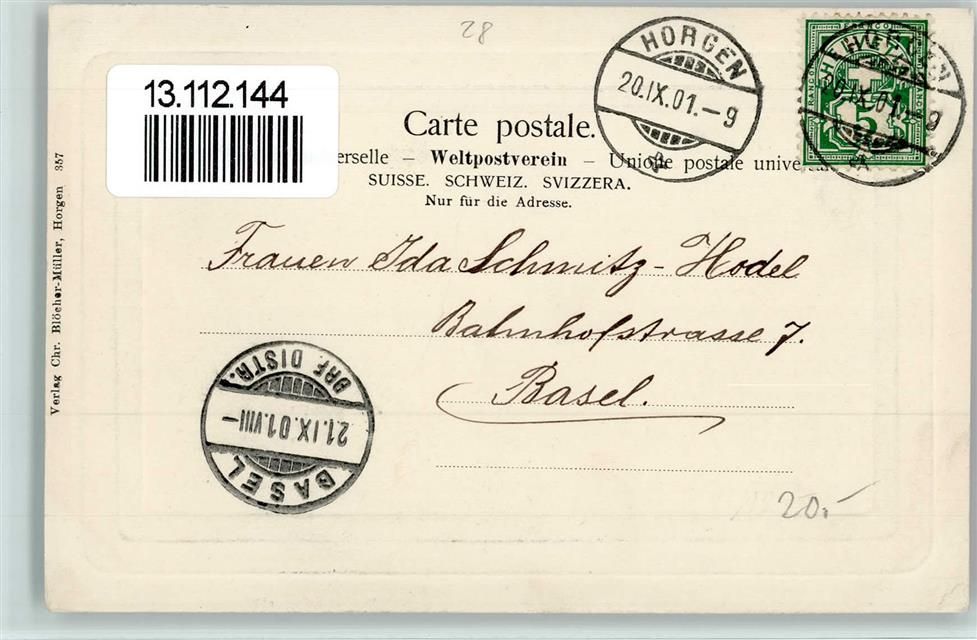 28
HORGEN
20.IX.01.-9
HELVETIA
FRANCO
5
20.IX.01.-9
13.112.144
Carte postale.
erselle – Weltpostverein – Unione postale univers
SUISSE. SCHWEIZ. SVIZZERA.
Nur für die Adresse.
Frauen Ida Schmitz-Hodel
Bahnhofstrasse 7.
Basel.
BRF. DISTR.
21.IX.01.VIII-
BASEL
20.-
Verlag Chr. Blöcher-Müller, Horgen 357